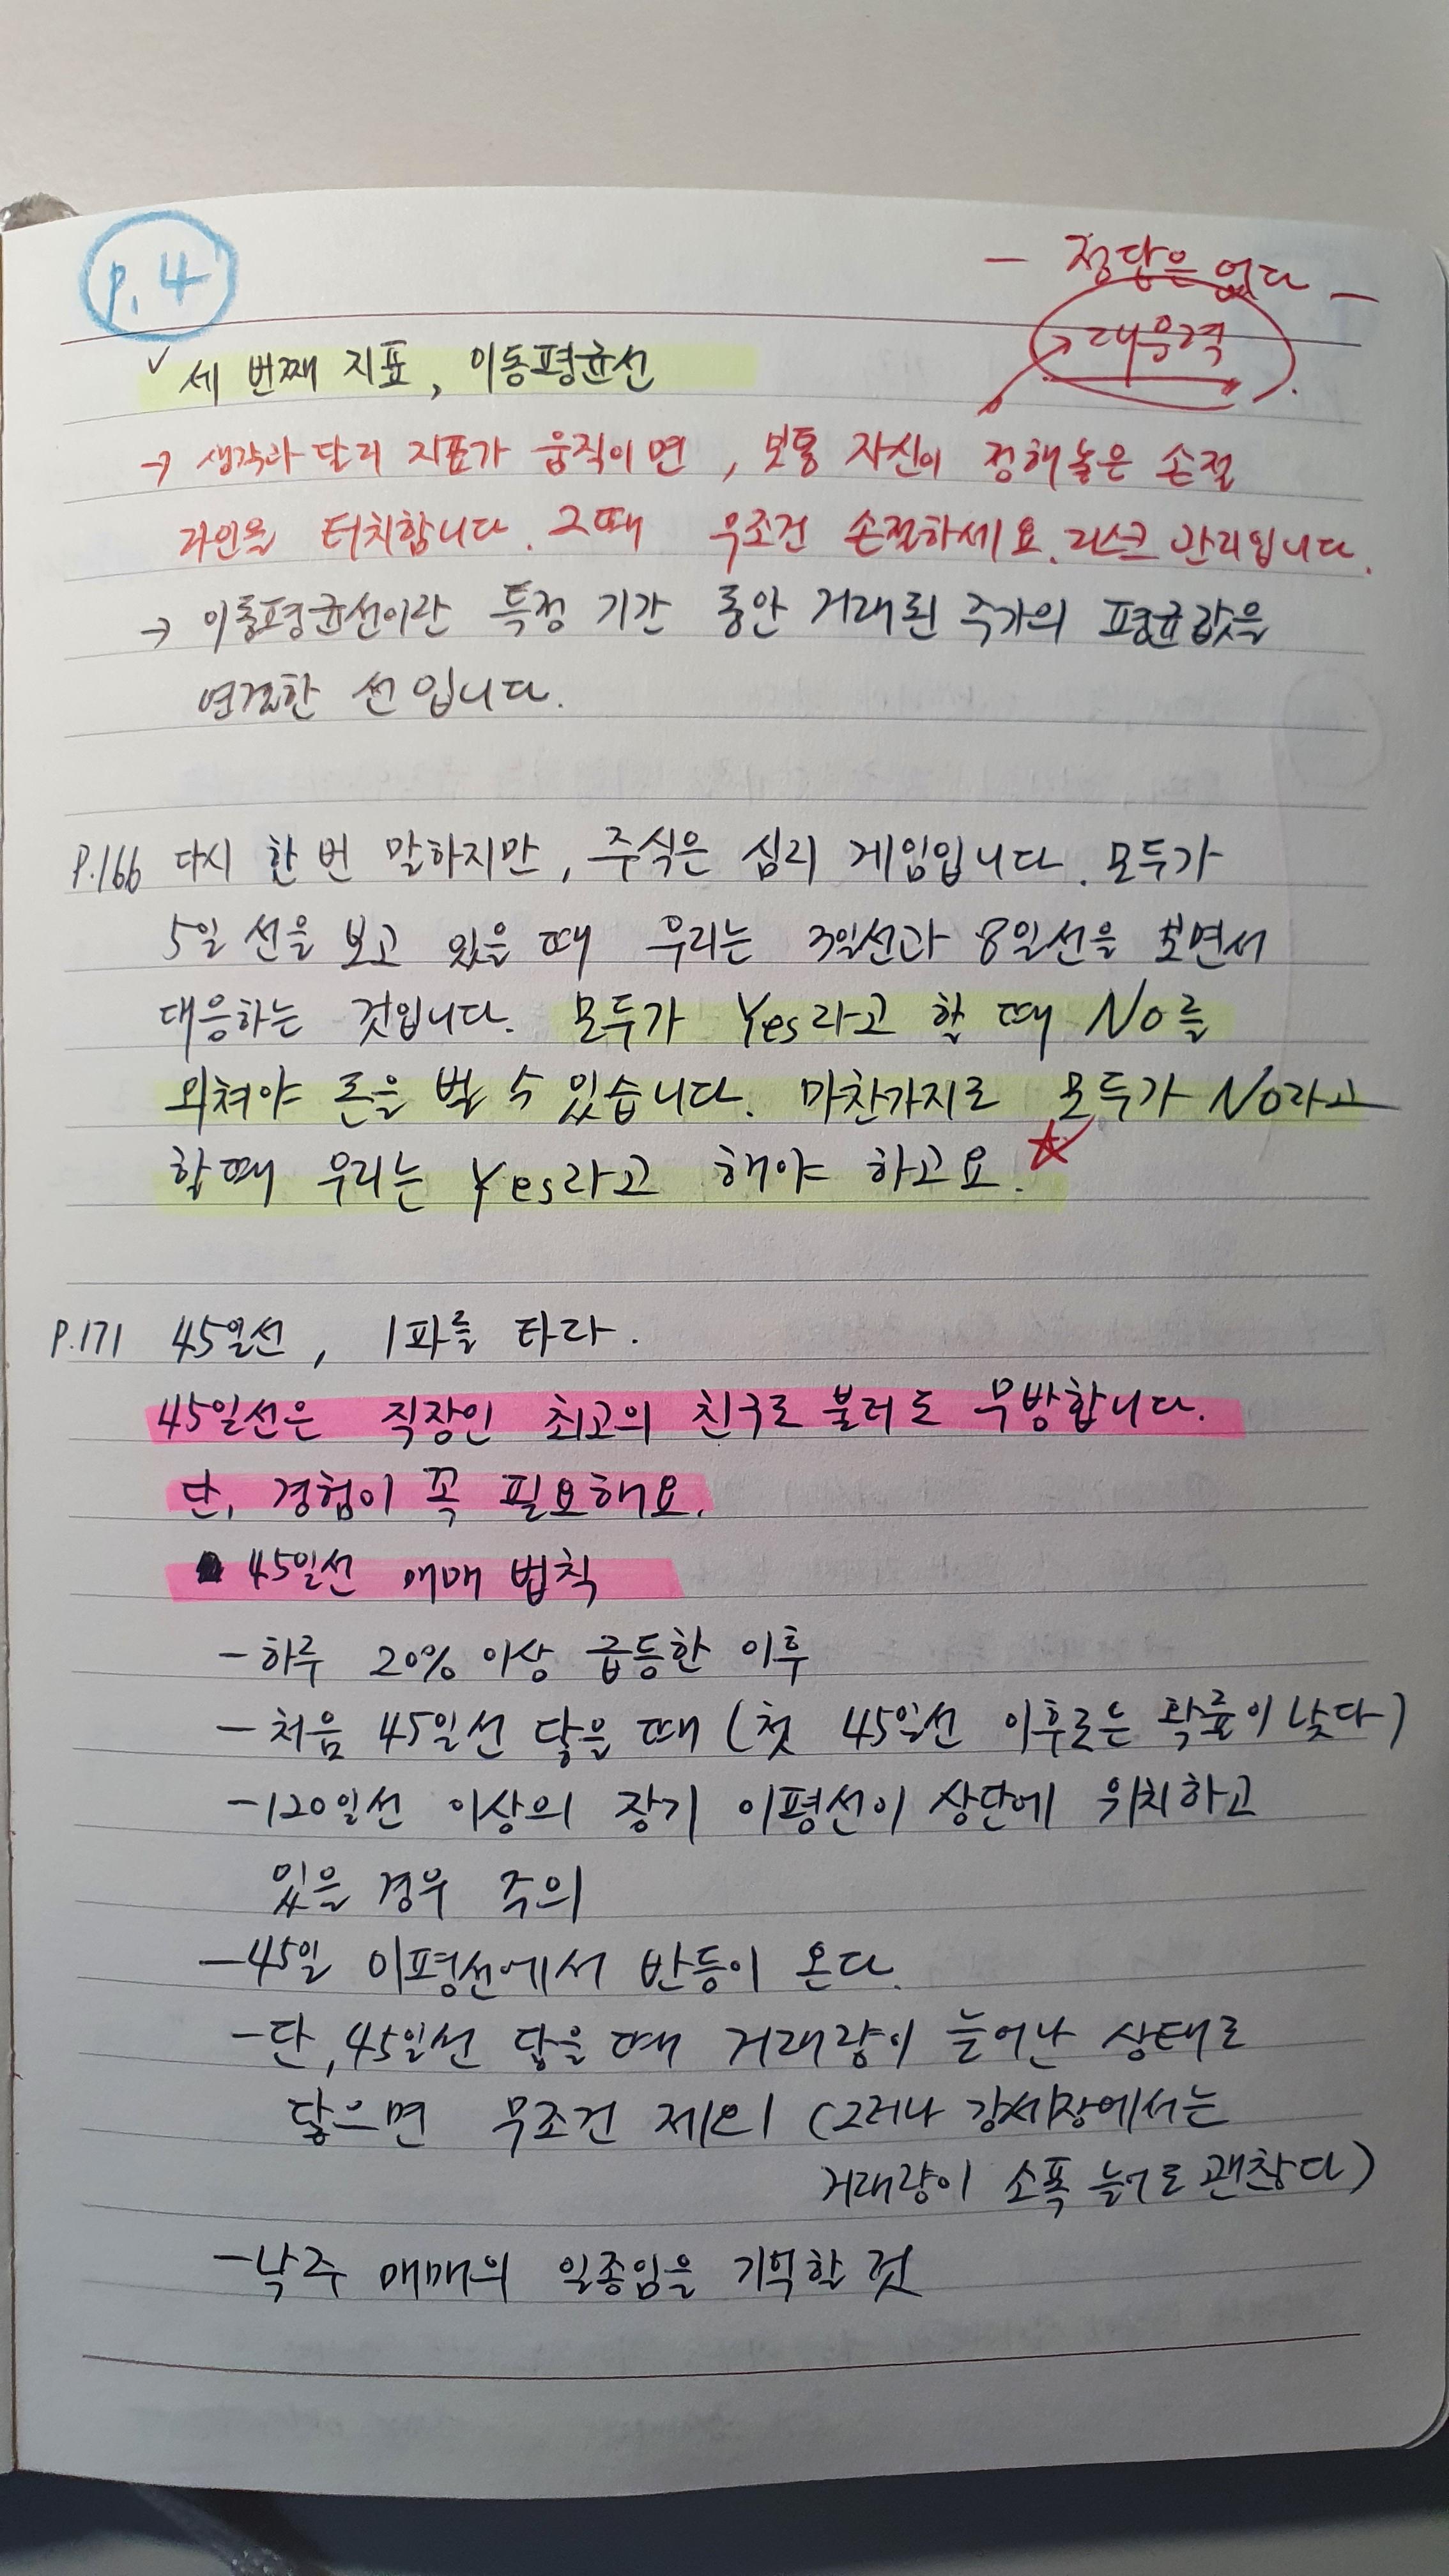 p.4
- 정답은 없다 -
대응력
✓ 세 번째 지표, 이동평균선
→ 생각과 달리 지표가 움직이면, 보통 자신이 정해놓은 손절
라인을 터치합니다. 그때 무조건 손절하세요. 리스크 관리입니다.
→ 이동평균선이란 특정 기간 동안 거래된 주가의 평균값을
연결한 선입니다.
P.166 다시 한 번 말하지만, 주식은 심리 게임입니다. 모두가
5일 선을 보고 있을 때 우리는 3일선과 8일선을 보면서
대응하는 것입니다. 모두가 Yes라고 할 때 No를
외쳐야 돈을 벌 수 있습니다. 마찬가지로 모두가 No라고
할 때 우리는 Yes라고 해야 하고요. ☆
P.171 45일선, 1파를 타라.
45일선은 직장인 최고의 친구로 불러도 무방합니다.
단, 경험이 꼭 필요해요.
45일선 매매 법칙
- 하루 20% 이상 급등한 이후
- 처음 45일선 닿을 때 (첫 45일선 이후로는 확률이 낮다)
- 120일선 이상의 장기 이평선이 상단에 위치하고
있을 경우 주의
- 45일 이평선에서 반등이 온다.
- 단, 45일선 닿을 때 거래량이 늘어난 상태로
닿으면 무조건 제외 (그러나 강세장에서는
거래량이 소폭 늘어도 괜찮다)
- 낙주 매매의 일종임을 기억할 것